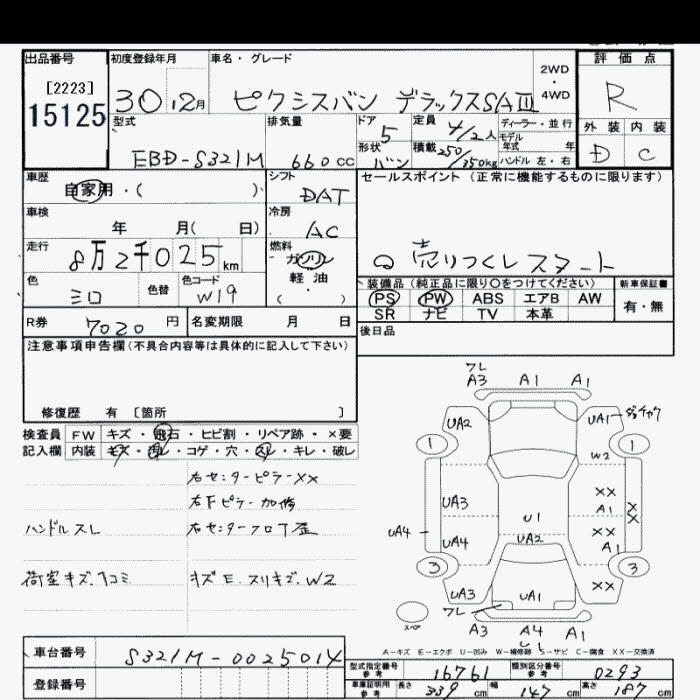 出品番号 初度登録年月 車名・グレード 評価点
[2223] 30年12月 ピクシスバン デラックスSAⅢ 2WD・4WD R
15125
型式 排気量 ドア 5 定員 4/2人 ディーラー・並行 外装 内装
EBD-S321M 660cc 形状 バン 積載 250/350kg モデル年式 年 D C
ハンドル 左・右
車歴 自家用・( ) シフト DAT セールスポイント(正常に機能するものに限ります)
車検 年 月( 日) 冷房 AC
走行 8万2千025km 燃料 ガソリン 軽油 ( ) 売りつくしスタート
色 シロ 色替 色コード W19 装備品(純正品に限り○をつけてください) 新車保証書
PS PW ABS エアB AW 有・無
R券 7020円 名変期限 月 日 SR ナビ TV 本革
注意事項申告欄(不具合内容等は具体的に記入して下さい) 後日品
修復歴 有 [箇所 ]
検査員 FW キズ・飛石・ヒビ割・リペア跡・×要
記入欄 内装 キズ・汚レ・コゲ・穴・スレ・キレ・破レ
右センターピラーXX
右Fピラー加修
ハンドルスレ 右センターフロア歪
荷室キズ.ヤコミ キズE.スリキズ.W2
フレ
A3 A1 A1
UA2 UA1
1 1
W2
XX
UA3 A1 X
U1 XX X
UA4 UA4 UA2 A1
3 3
UA3 UA1 XX
フレ
スペア A3 A4 A1
U1
A-キズ E-エクボ U-凹み W-補修跡 S-サビ C-腐食 XX-交換済
車台番号 S321M-0025014
型式指定番号 参考 16761 類別区分番号 参考 0293
登録番号 車庫証明用 参考 長さ 339cm 幅 147cm 高さ 187cm